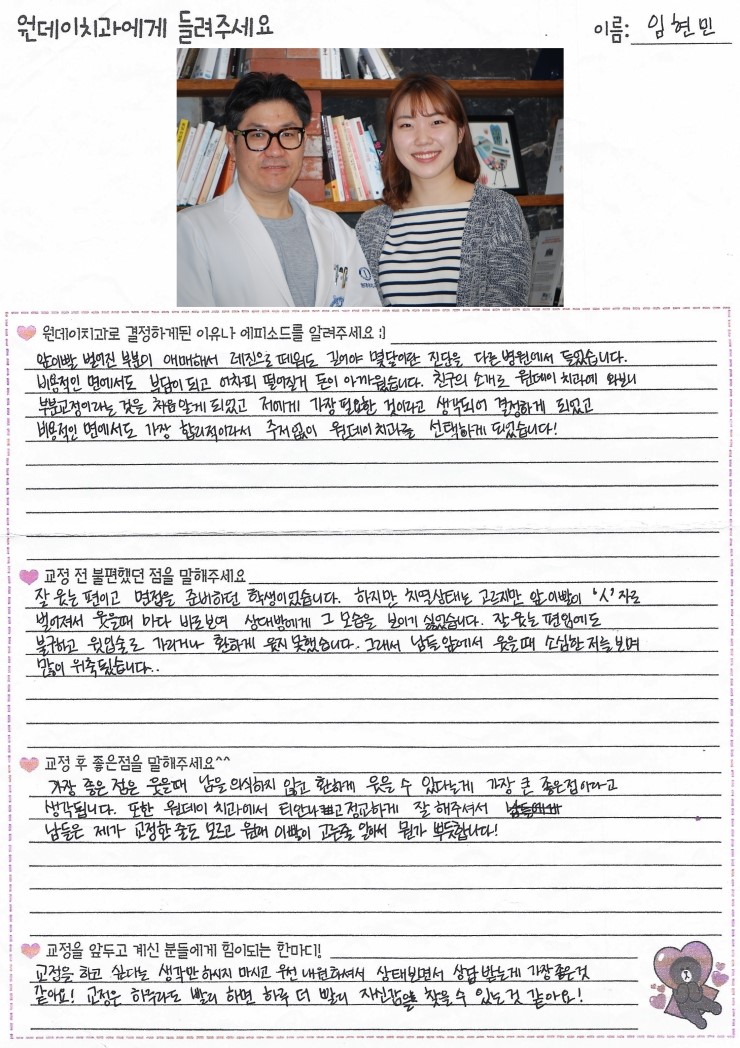 원데이치과에게 들려주세요
이름: 임현민
원데이치과로 결정하게된 이유나 에피소드를 알려주세요 :)
앞이빨 벌어진 부분이 애매해서 레진으로 떼워도 길어야 몇달이란 진단을 다른 병원에서 들었습니다.
비용적인 면에서도 부담이 되고 어차피 떨어질거 돈이 아까웠습니다. 친구의 소개로 원데이 치과에 와보니
부분교정이라는 것을 처음알게 되었고 저에게 가장 필요한 것이라고 생각되어 결정하게 되었고
비용적인 면에서도 가장 합리적이라서 주저없이 원데이치과를 선택하게 되었습니다!
교정 전 불편했던 점을 말해주세요
잘 웃는 편이고 면접을 준비하던 학생이었습니다. 하지만 치열상태는 고르지만 앞이빨이 'ㅅ'자로
벌어져서 웃을때 마다 바로보여 상대방에게 그 모습을 보이기 싫었습니다. 잘 웃는 편임에도
불구하고 윗입술로 가리거나 환하게 웃지 못했습니다. 그래서 남들 앞에서 웃을때 소심한 저를 보며
많이 위축됬습니다..
교정 후 좋은점을 말해주세요^^
가장 좋은 점은 웃을때 남을 의식하지 않고 환하게 웃을 수 있다는게 가장 큰 좋은점이라고
생각됩니다. 또한 원데이 치과에서 티안나고 정교하게 잘 해주셔서
남들은 제가 교정한 줄도 모르고 원래 이빨이 고른줄 알아서 뭔가 뿌듯합니다!
교정을 앞두고 계신 분들에게 힘이되는 한마디!
교정을 하고 싶다는 생각만 하시지 마시고 우선 내원하셔서 상태보면서 상담 받는게 가장 좋은것
같아요! 교정은 하루라도 빨리 하면 하루 더 빨리 자신감을 찾을 수 있는 것 같아요!